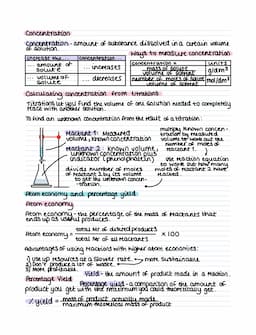 Concentration
Concentration - amount of substance dissolved in a certain volume
of solution.
Ways to measure concentration
Increase the... concentration
... amount of solute ... increases
... volume of solute ... decreases
concentration = units
mass of solute
volume of solvent
g/dm³
number of moles of solute
volume of solvent
mol/dm³
Calculating concentration from titrations
Titrations let you find the volume of one solution needed to completely
react with another solution.
To find an unknown concentration from the result of a titration:
Reactant 1: Measured
volume, known concentration
Reactant 2: Known volume,
unknown concentration plus
indicator (phenolphthalein)
multiply known concen-
tration by measured
volume to work out the
number of moles of
reactant 1.
use reaction equation
to work out how many
moles of reactant 2 have
reacted.
divide number of moles
of reactant 2 by its volume
to get the unknown concen-
tration.
Atom economy and percentage yield
Atom economy
Atom economy - the percentage of the mass of reactants that
ends up as useful products.
Atom economy = total Mr of desired products
total Mr of all reactants
× 100
Advantages of using reactions with higher atom economies:
1) Use up resources at a slower rate → more sustainable
2) Don't produce a lot of waste
3) More profitable.
Percentage Yield
Yield - the amount of product made in a reaction.
Percentage yield - a comparison of the amount of
product you get with the maximum you could theoretically get.
% yield = mass of product actually made
maximum theoretical mass of product